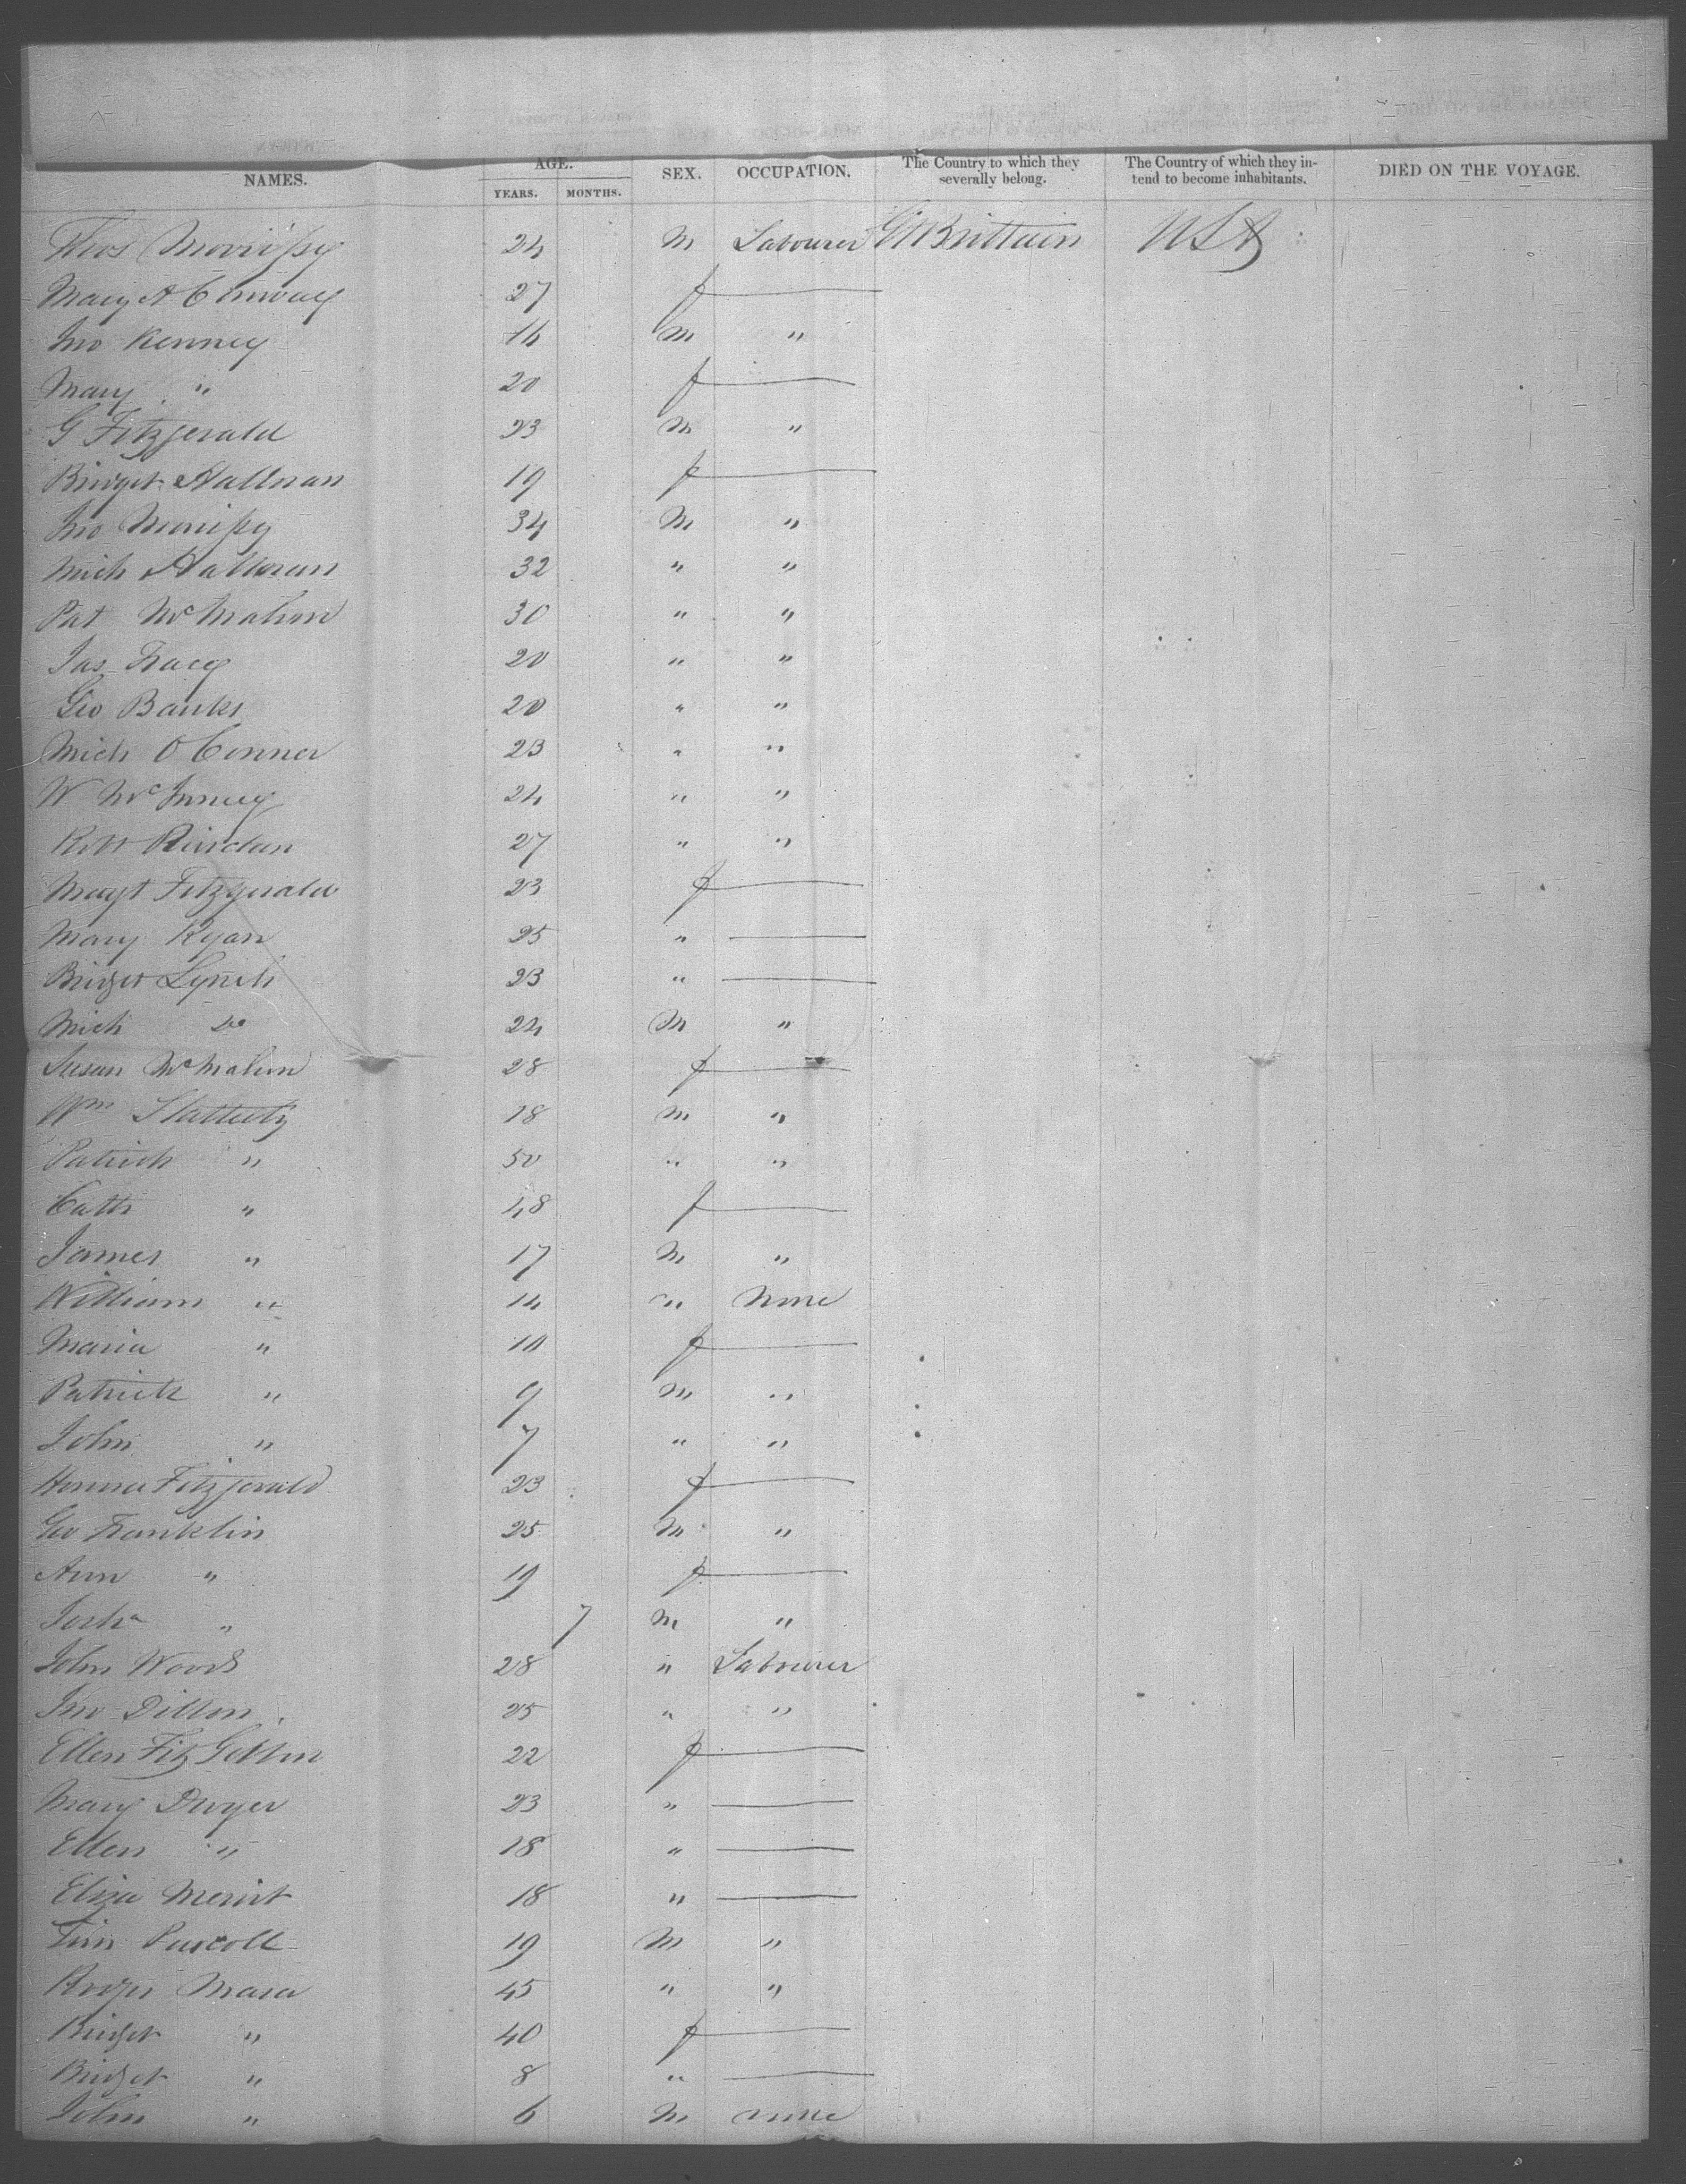 NAMES. AGE. YEARS. MONTHS. SEX. OCCUPATION. The Country to which they severally belong. The Country of which they intend to become inhabitants. DIED ON THE VOYAGE.
Thos Morrissy 24 M Labourer Gt Brittain USA
Mary A Conway 27 f —
Jno Kenney 16 M "
Mary " 20 f —
G Fitzgerald 23 M "
Bridget Hallman 19 f —
Jno Morrissy 34 M "
Mich Halloran 32 " "
Pat McMahon 30 " "
Jas Tracy 20 " "
Geo Banks 20 " "
Mich O Conner 23 " "
W 24 " "
Robt Riordan 27 " "
Magt Fitzgerald 23 f —
Mary Ryan 25 " —
Bridget Lynch 23 " —
Mich Do 24 M "
Susan McMahon 28 f —
Wm Slattery 18 M "
Patrick " 50 " "
Cath " 48 f —
James " 17 M "
William " 14 " None
Maria " 11 f —
Patrick " 9 M "
John " 7 " "
Honora Fitzgerald 23 f —
Geo Franklin 25 M "
Ann " 19 f —
" 7 M "
John Woods 28 " Labourer
Jno Dillon 25 " "
Ellen Fitz Gibbon 22 f —
Mary Dwyer 23 " —
Ellen " 18 " —
Eliza 18 " —
Tim 19 M "
Roger Mara 45 " "
Bridget " 40 f —
Bridget " 8 " —
John " 6 M none